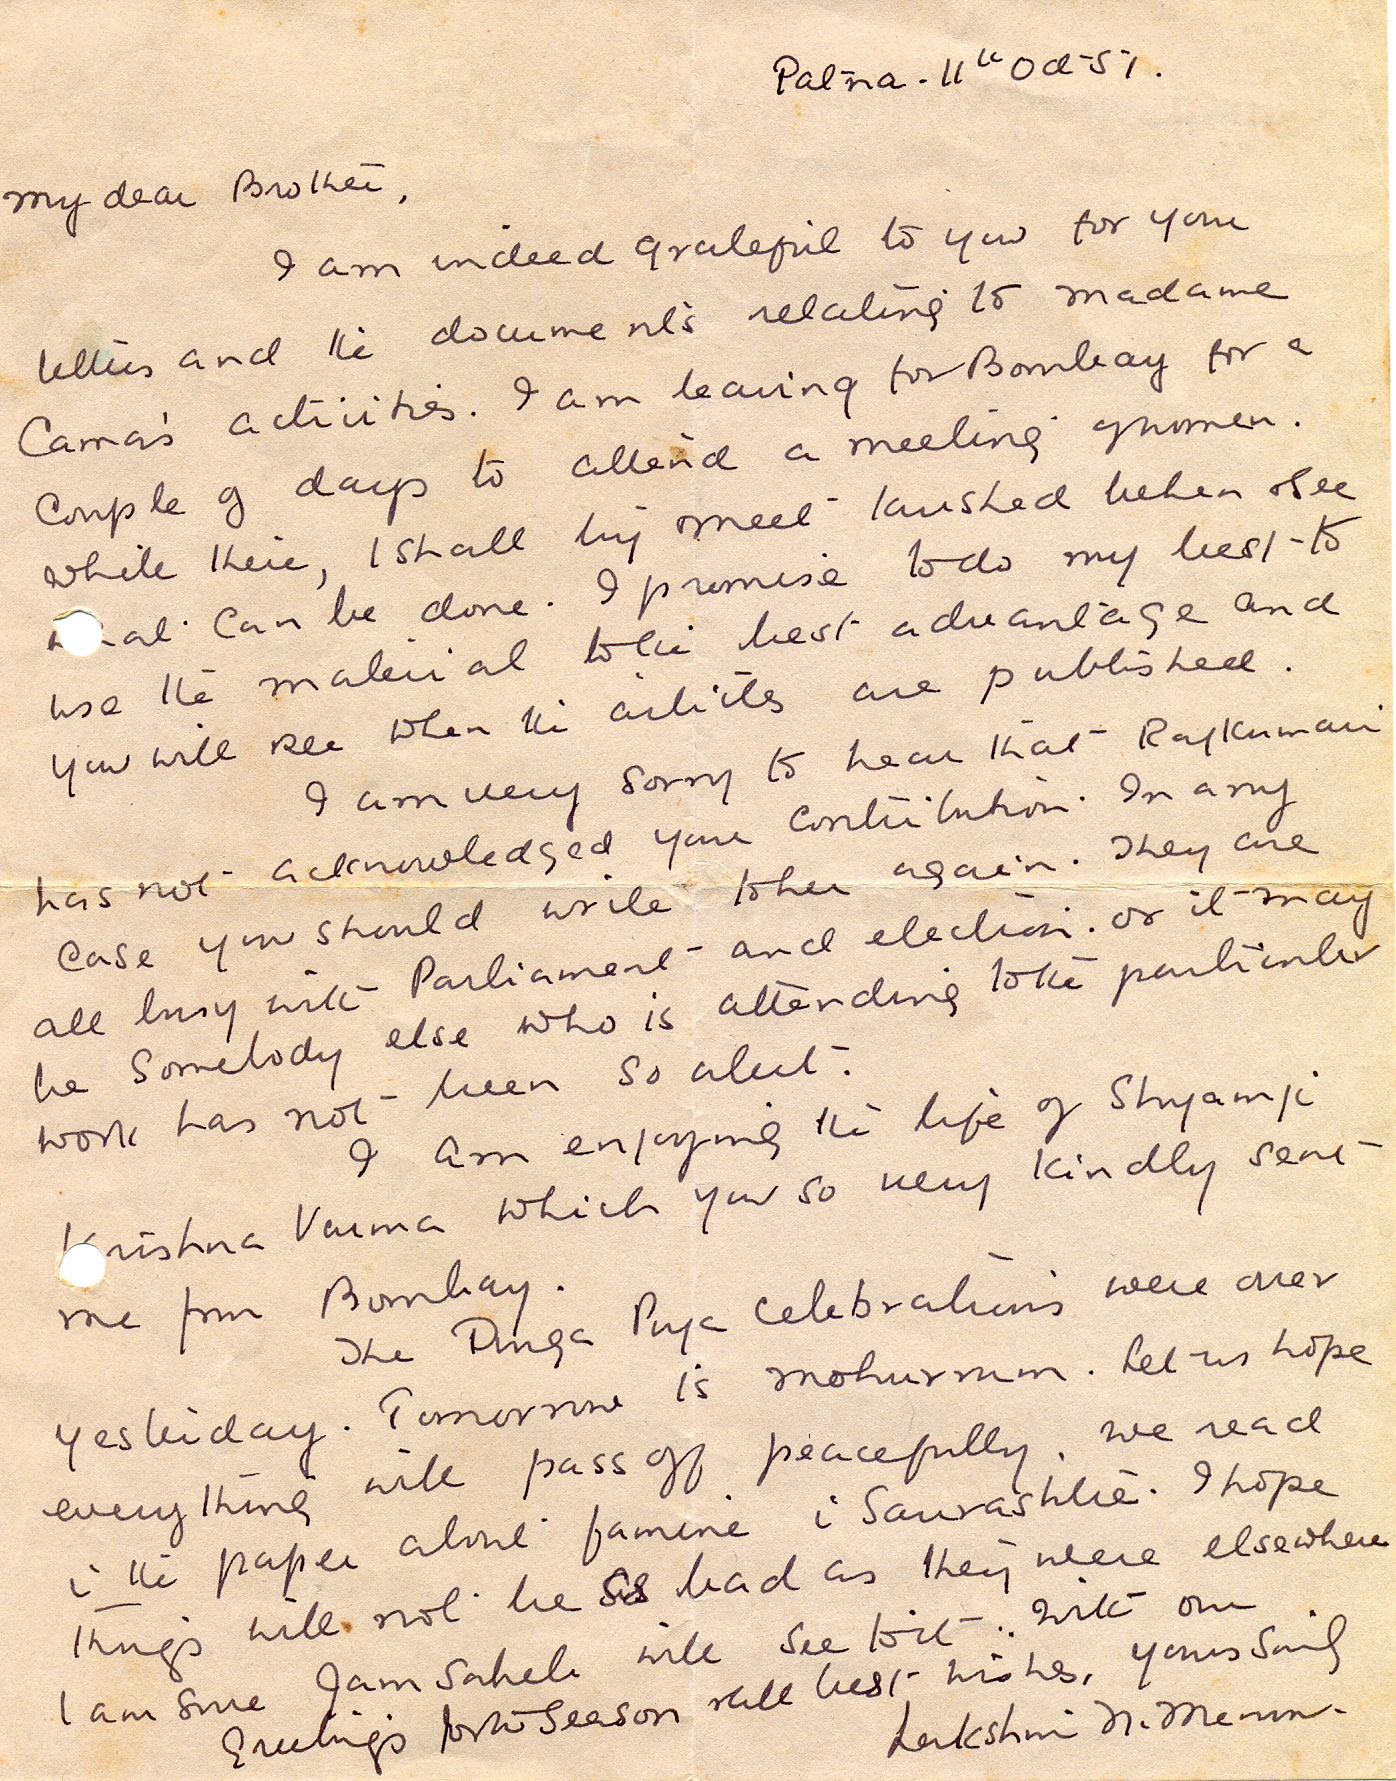 Patna - 11th Oct 51.
My dear Brother,
I am indeed grateful to you for your
letters and the documents relating to Madame
Cama's activities. I am leaving for Bombay for a
couple of days to attend a meeting of women.
While there, I shall try meet Kurshed behen & see
what can be done. I promise to do my best to
use the material to the best advantage and
you will see when the articles are published.
I am very sorry to hear that Rajkumari
has not acknowledged your contribution. In any
case you should write to her again. They are
all busy with Parliament and election. or it may
be Somebody else who is attending to the particular
work has not been so alert.
I am enjoying the life of Shyamji
Krishna Varma which you so very kindly sent
me from Bombay.
The Durga Puja celebrations were over
yesterday. Tomorrow is Mohurrum. Let us hope
everything will pass off peacefully. We read
in the paper about famine in Saurashtra. I hope
things will not be as bad as they were elsewhere
I am sure Jam Saheb will see to it. With our
Greetings for the Season & all best wishes, yours Sincly
Lakshmi N. Menon.